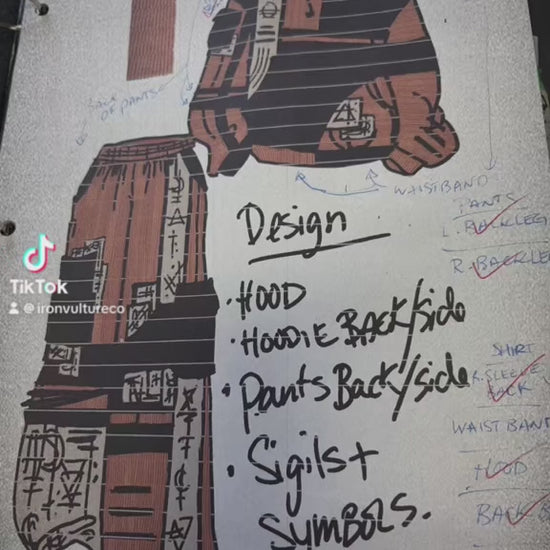 BACK
OF PANTS
WAISTBAND
Design
• HOOD
• HOODIE BACK/side
• Pants Back/side
• Sigils +
Symbols.
PANTS
L. BACK LEG
R. BACK LE
SHIRT
SLEEVE
BACK
WAISTBAN
HOOD
BACK B
TikTok
@ironvultureco